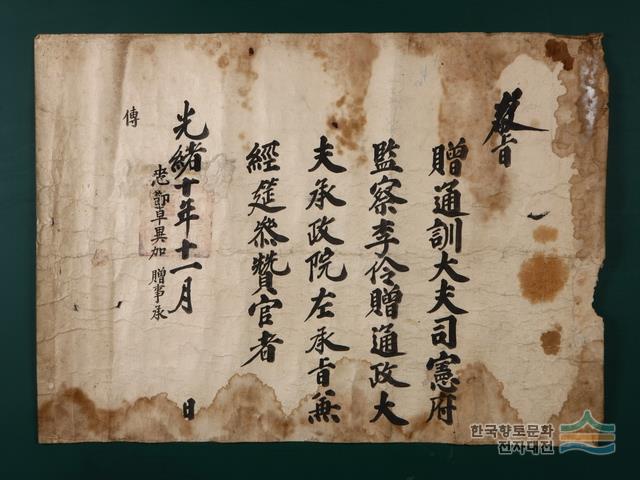 敎旨
贈通訓大夫司憲府
監察李伶贈通政大
夫承政院左承旨兼
經筵參贊官者
光緖十年十一月 日
忠節卓異加 贈事承
傳
한국향토문화
전자대전